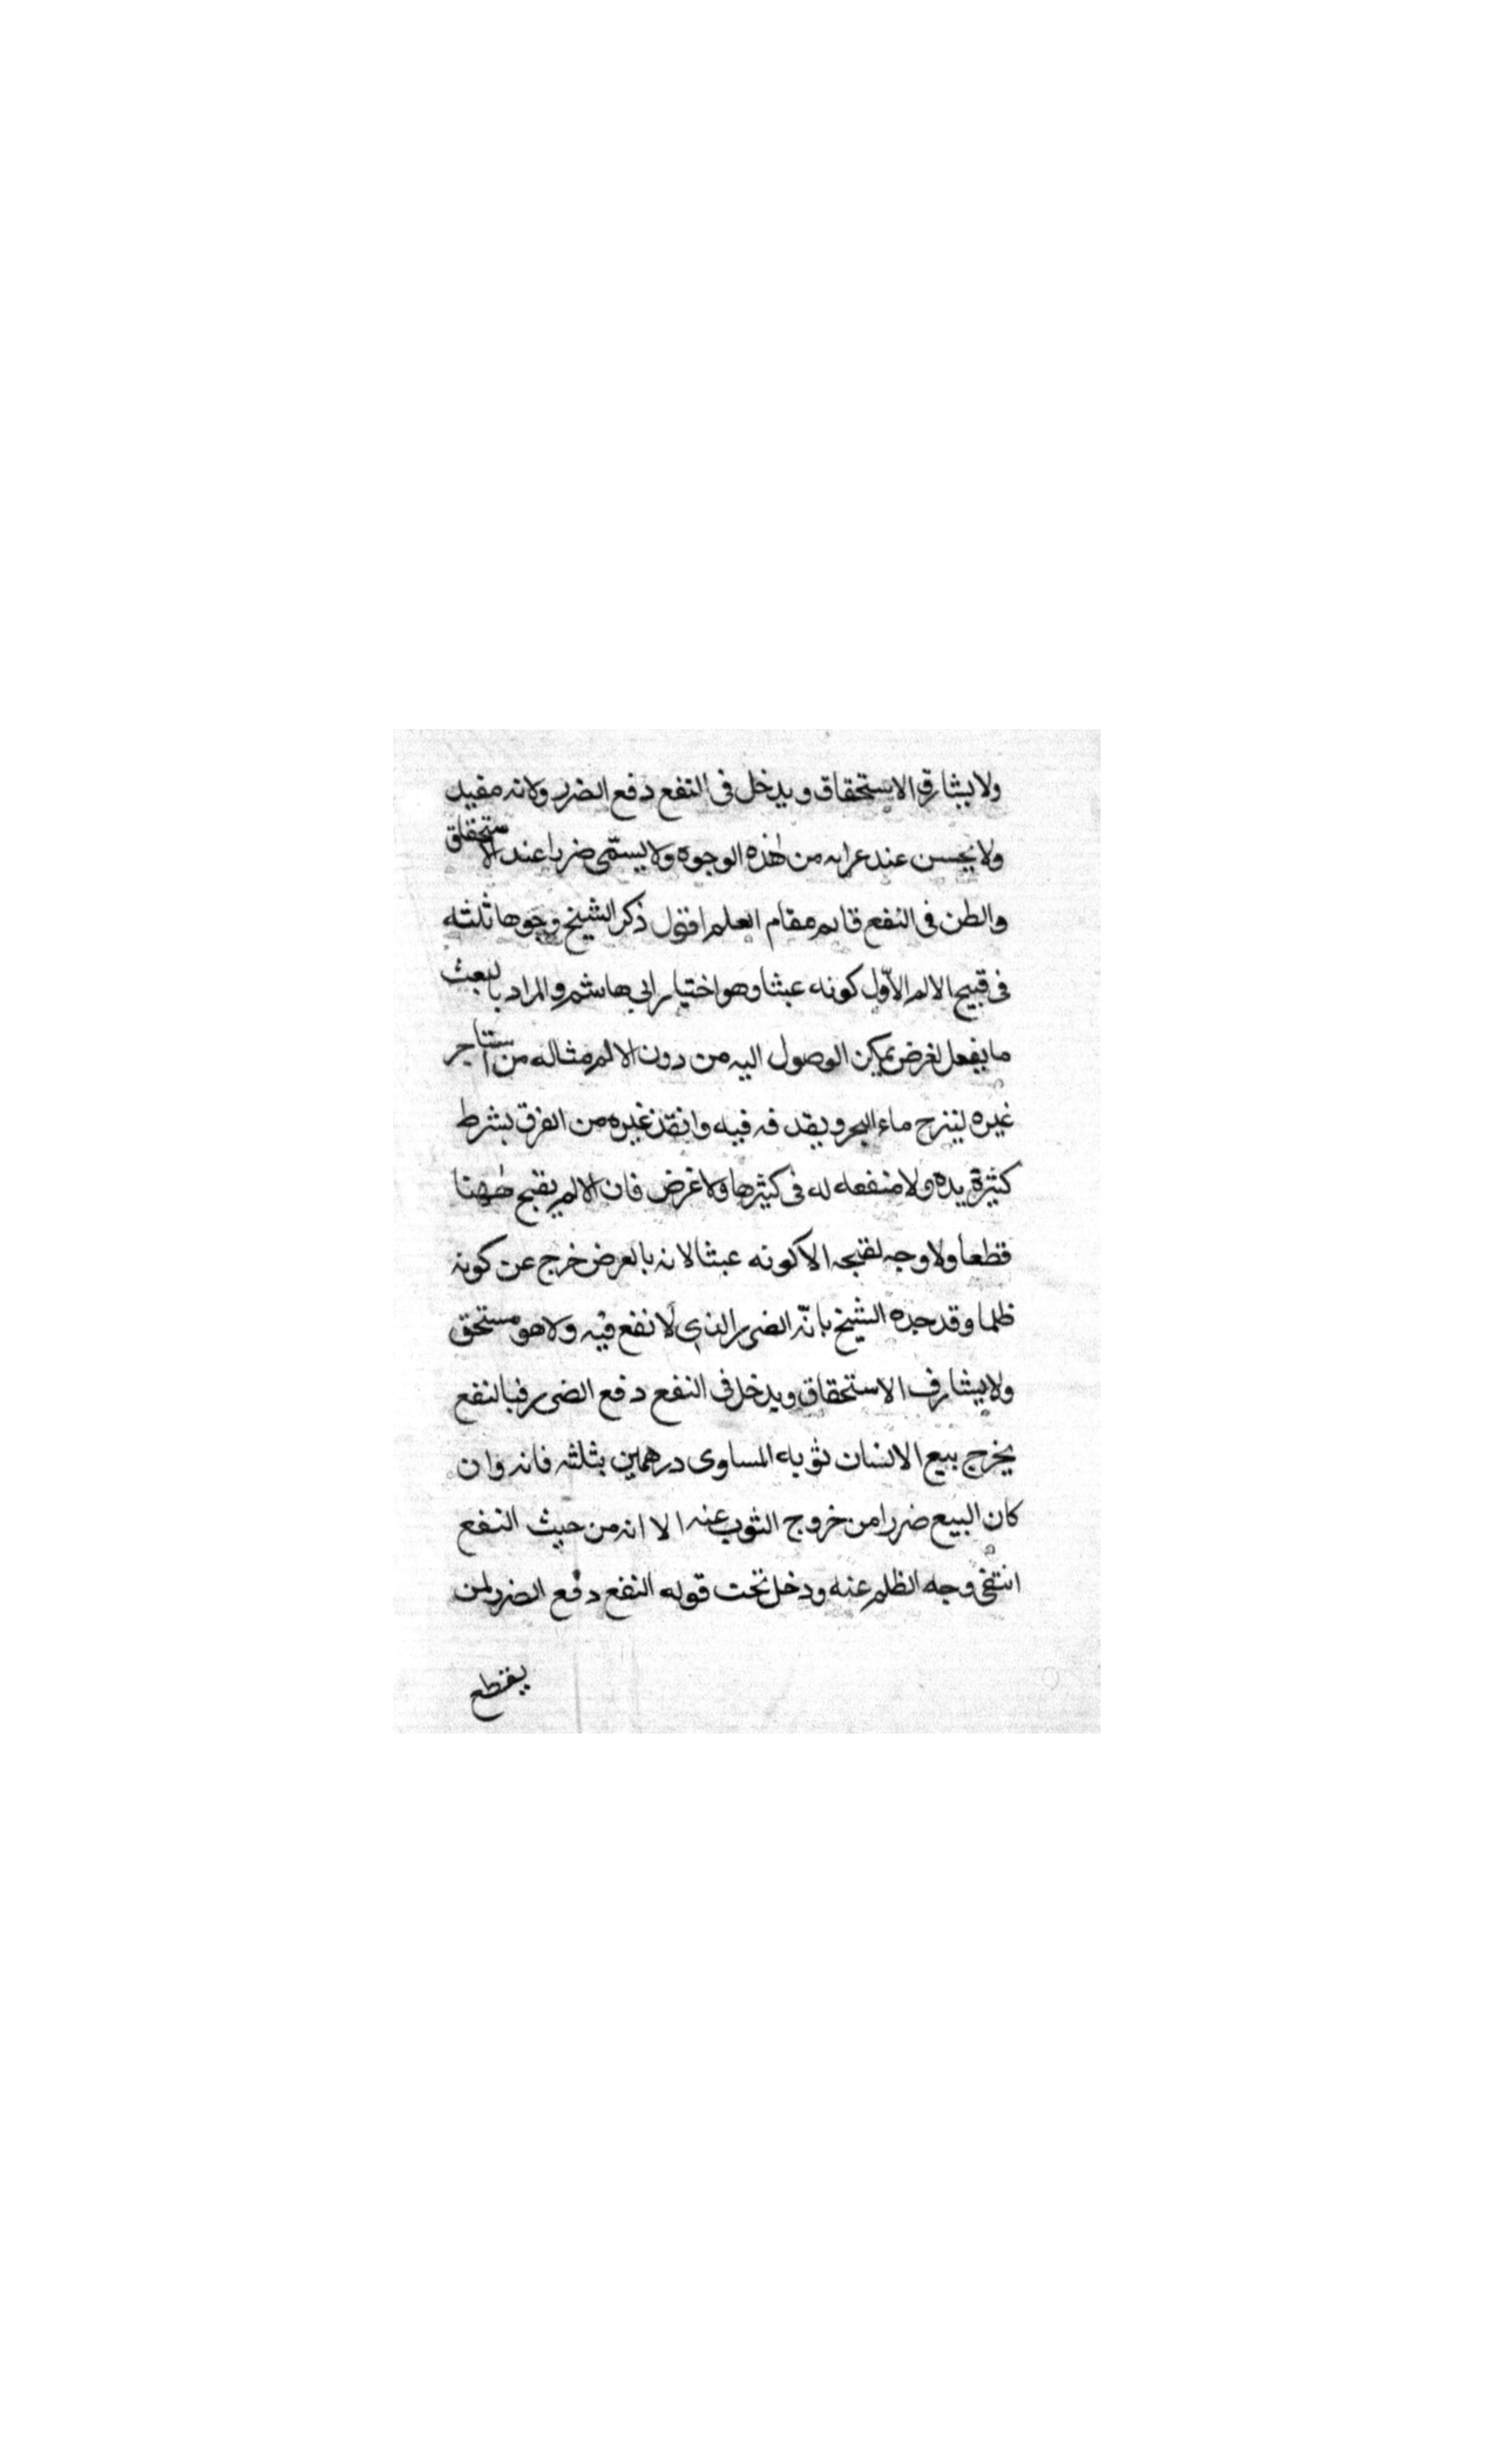 ولا يشارق الاستحقاق ويدخل فى النفع دفع الضرر ولانه مفيد
ولا يحسن عند عرايه من هذه الوجوه ولا يسمّى ضررا عند الاستحقاق
والظن فى النفع قايم مقام العلم اقول ذكر الشيخ وجوها ثلثه
فى قبيح الالم الاوّل كونه عبثا وهو اختيار ابى هاشم والمراد بالبعث
ما يفعل لغرض يمكن الوصول اليه من دون الالم مثاله من استاجر
غيره لينزح ماء البحر ويقدفه فيه وانقذ غيره من الغرق بشرط
كثيرة يده ولا منفعه له فى كثيرها ولا غرض فان الالم يقبح ههنا
قطعا ولا وجه لقبحه الا كونه عبثا لانه بالعرض خرج عن كونه
ظلما وقد حده الشيخ بانّه الضرر الذى لا نفع فيه ولا هو مستحق
ولا يشارف الاستحقاق ويدخل فى النفع دفع الضرر فبالنفع
يخرج بيع الانسان ثوبه المساوى درهمين بثلثه فانه وان
كان البيع ضررا من خروج الثوب عنه الا انه من حيث النفع
انتفى وجه الظلم عنه ودخل تحت قوله النفع دفع الضرر لمن
يقطع